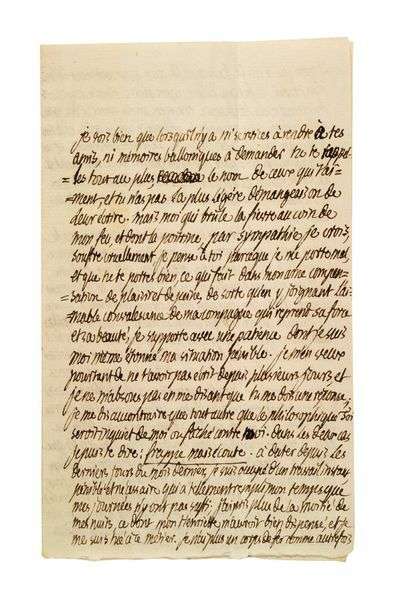 je vois bien que lorsqu'il n'y a ni services à rendre à tes
amis, ni mémoires balloniques à demander tu te rappel-
=les tout au plus, le nom de ceux qui t'ai-
=ment, et tu n'as pas la plus légère démangeaison de
leur écrire. mais moi qui brûle la fievre au coin de
mon feu, et dont la poitrine, par sympathie je crois,
souffre cruellement je pense à toi parceque je me porte mal,
et que tu te portes bien, ce qui fait dans mon ame compen-
=sation de plaisir et de peine, de sorte qu'en y joignant l'ai-
=mable convalescence de ma compagne qui reprend sa force
et sa beauté, je supporte avec une patience dont je suis
moi même étonné ma situation pénible. je m'en veux
pourtant de ne t'avoir pas écrit depuis plusieurs jours, et
je ne m'absous pas en me disant que tu me dois une réponse,
je me dis au contraire que tout autre que le philosophique
seroit inquiet de moi ou faché contre moi. dans les deux cas
je puis te dire: frappe mais écoute. à dater depuis les
derniers jours du mois dernier, je suis occupé d'un travail insup
portable et nécessaire, qui a tellement rempli mon temps que
mes journées n'y ont pas suffi. j'y ai mis plus de la moitié de
mes nuits, ce dont mon Henriette m'auroit bien dispensé, et je
me suis tué à ce métier. je n'ai plus un corps de fer comme autrefois